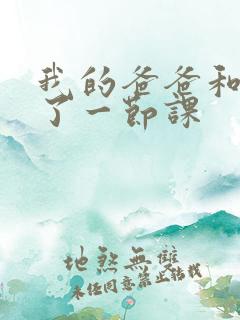 我的爸爸和
了一节课
地煞無雙
未经同意禁止转载